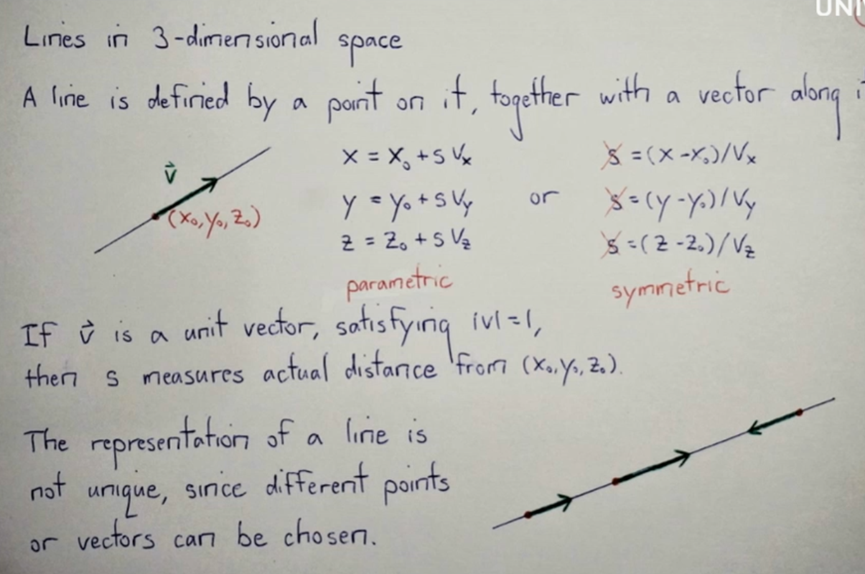 UNI
Lines in 3-dimensional space
A line is defined by a point on it, together with a vector along i
v⃗
(x₀,y₀,z₀)
x = x₀ + s Vₓ
y = y₀ + s Vy
z = z₀ + s Vz
parametric
or
s = (x - x₀)/Vₓ
s = (y - y₀)/Vy
s = (z - z₀)/Vz
symmetric
If v⃗ is a unit vector, satisfying |v| = 1,
then s measures actual distance from (x₀,y₀,z₀).
The representation of a line is
not unique, since different points
or vectors can be chosen.